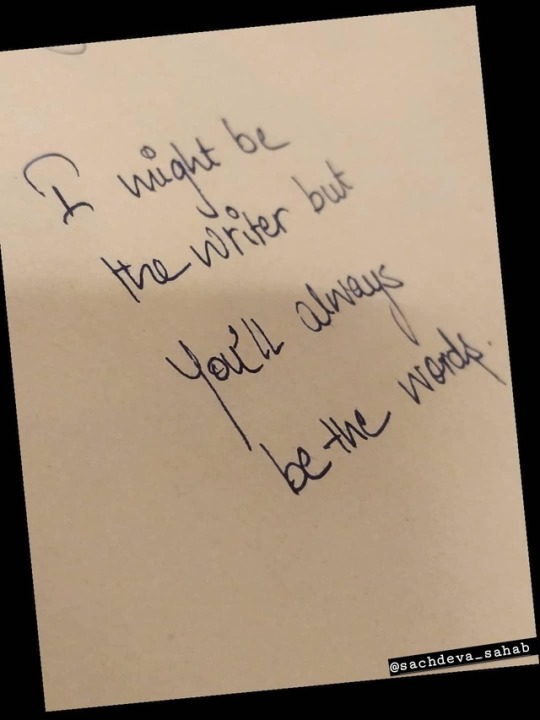 I might be
the writer but
You'll always
be the words.
@sachdeva_sahab